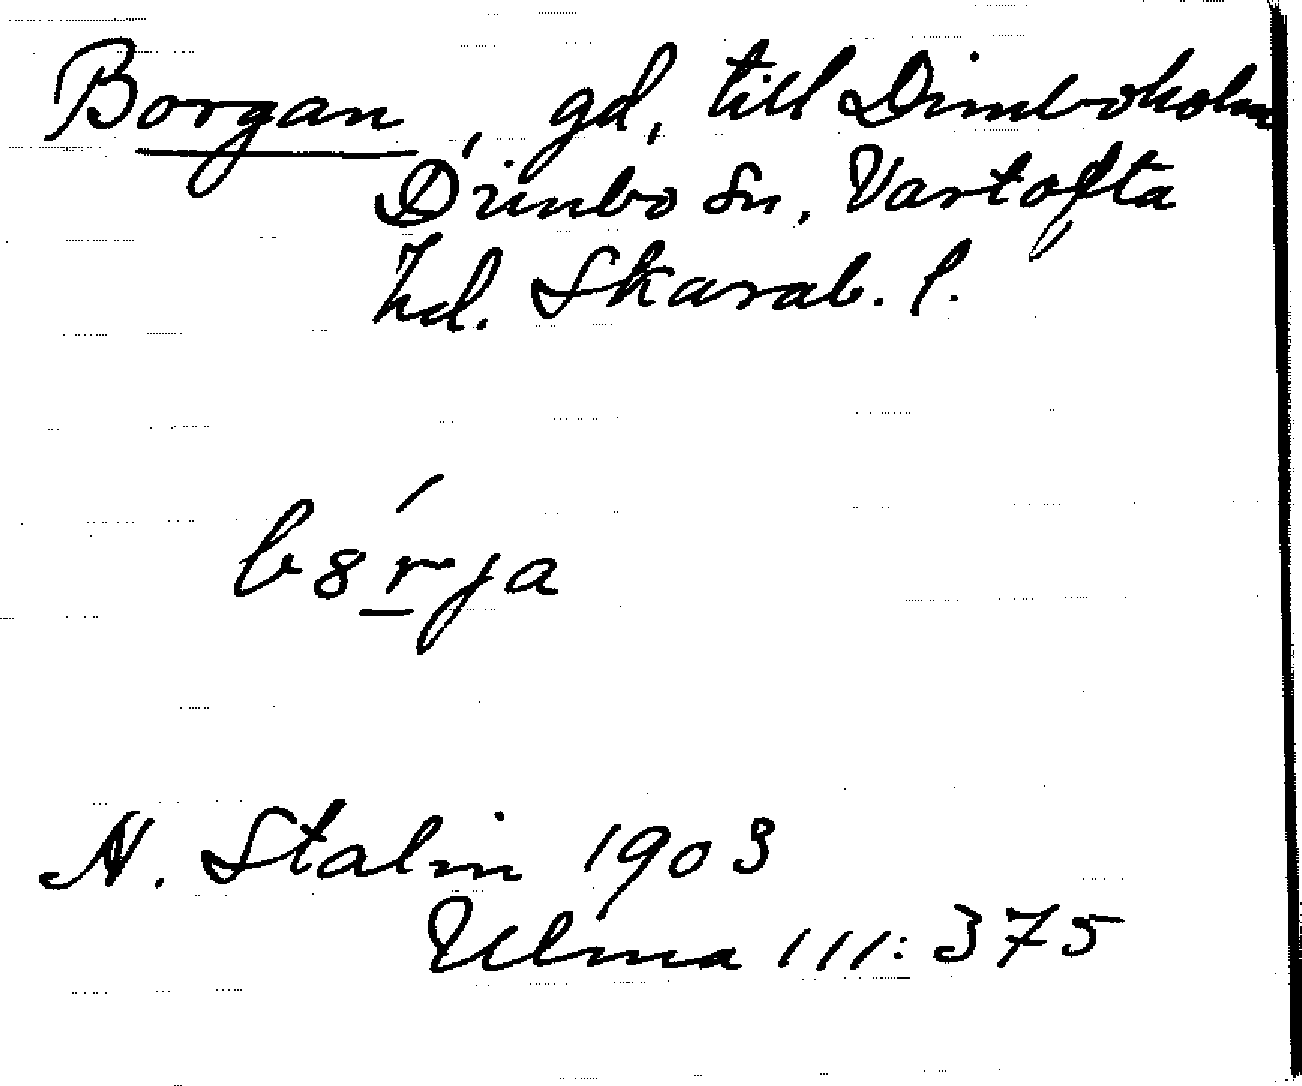 Borgan, gd, till Dimboholm
Dimbo Sn, Vartofta
hd. Skarab. l.
b8́rja
N. Stalin 1903
Ulma 111:375